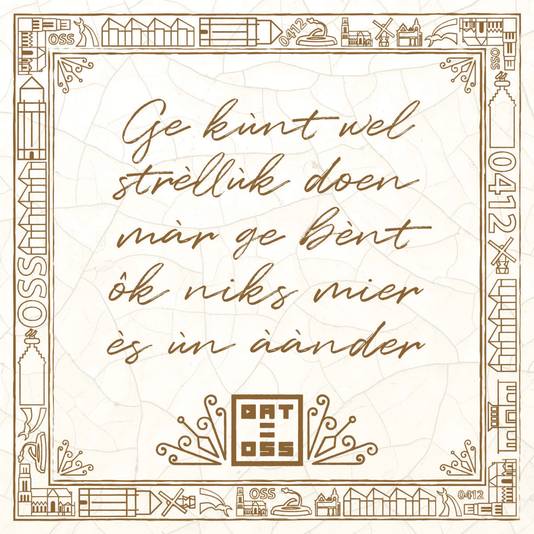 OSS
0412
OSS
0412
OSS
Ge kùnt wel
strèllùk doen
màr ge bènt
ôk niks mier
ès ùn àànder
DAT
=
OSS
OSS
0412